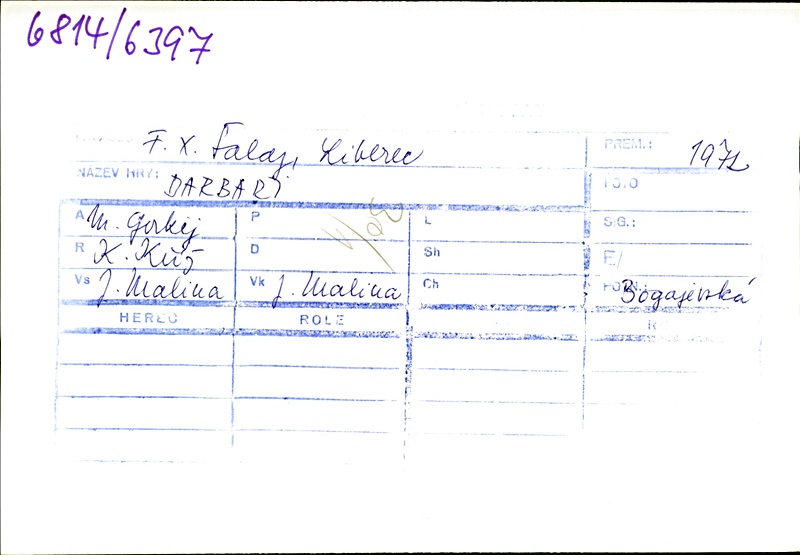 6814/6397
F. X. Šalay, Liberec
PREM.: 1971
NÁZEV HRY: BARBAŘI
FOTO
A M. Gorkij P L S.G.:
R K. Kříž D Sh E/
Vs J. Malina Vk J. Malina Ch POZN.: Bogajevská
HEREC ROLE